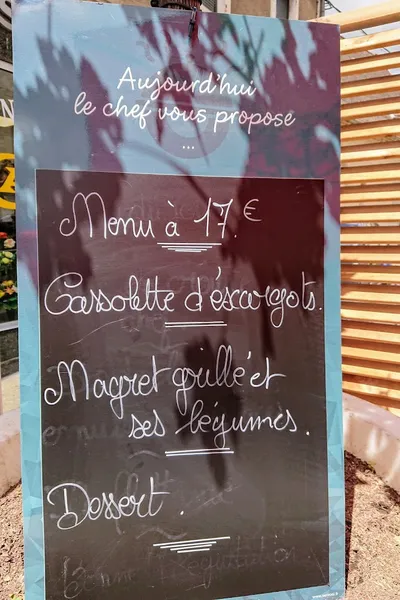 Aujourd'hui
le chef vous propose
...
Menu à 17 €
Cassolette d'éscargots.
Magret grillé et
ses légumes.
Dessert.